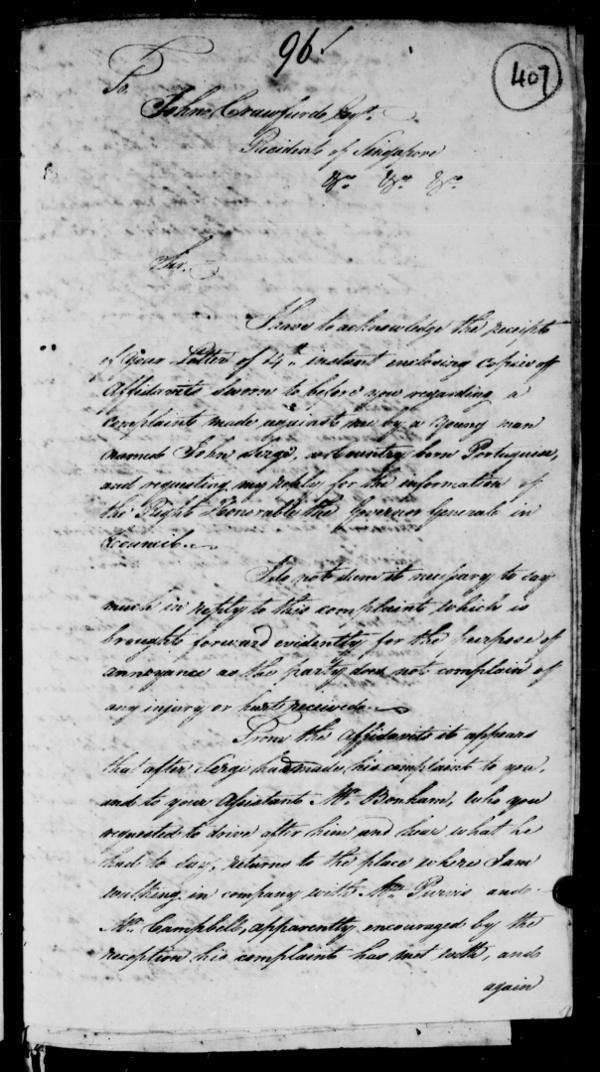 96
407
To
John Crawfurd Esqr.
Resident of Singapore
&ca. &ca. &ca.
Sir,
I have to acknowledge the receipt
of your Letter of 14th instant enclosing copies of
Affidavits sworn to before you regarding a
complaint made against me by a young man
named John Serge, a Country born Portuguese,
and requesting my reply for the information of
the Right Honorable the Governor General in
Council.
I do not deem it necessary to say
much in reply to this complaint which is
brought forward evidently for the purpose of
annoyance as the party does not complain of
any injury or hurt received.
From the Affidavits it appears
that after Serge had made his complaint to you,
and to your Assistant Mr. Bonham, who you
requested to drive after him and hear what he
had to say, returns to the place where I am
walking in company with Purvis and
Mr. Campbell, apparently encouraged by the
reception his complaint has met with, and
again